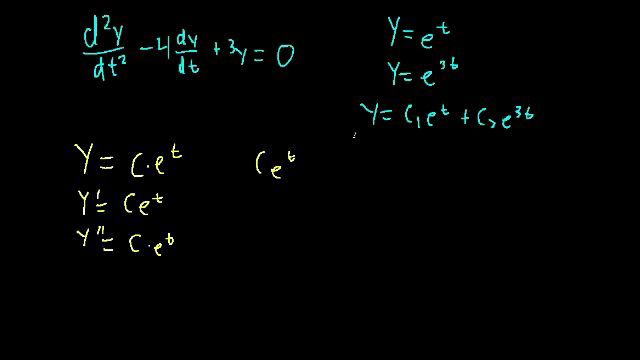 d²y/dt² - 4 dy/dt + 3y = 0
y = e^t
y = e^3t
y = c₁e^t + c₂e^3t
y = c·e^t
ce^t
y' = ce^t
y'' = c·e^t